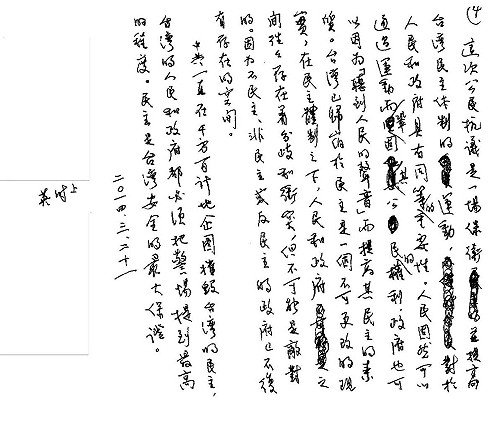 (4)
這次公民抗議是一場保衛並提高
台灣民主体制的運動,對於
人民和政府具有同等的重要性。人民固然可以
通過運動而鞏固其公民的權利,政府也可
以因為「聽到人民的聲音」而提高其民主的素
質。台灣已歸宿於民主是一個不可更改的現
實,在民主體制之下,人民和政府之
間往往存在着分歧和衝突,但不可能是敵對
的。因為不民主、非民主或反民主的政府已不復
有存在的空間。
中共一直在千方百計地企圖摧毀台灣的民主,
台灣的人民和政府都必須把警場提到最高
的程度。民主是台灣安全的最大保證。
二〇一四、三、二十一
英時上